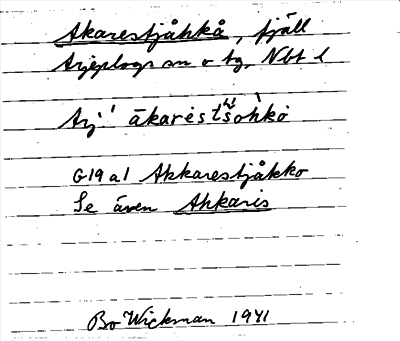 Akarestjåhkå, fjäll
Arjeplogs sn o tg, Nbt l
Arj.' ākarėstšohkȯ
G19a1 Akkarestjåkko
Se även Ahkaris
Bo Wickman 1941